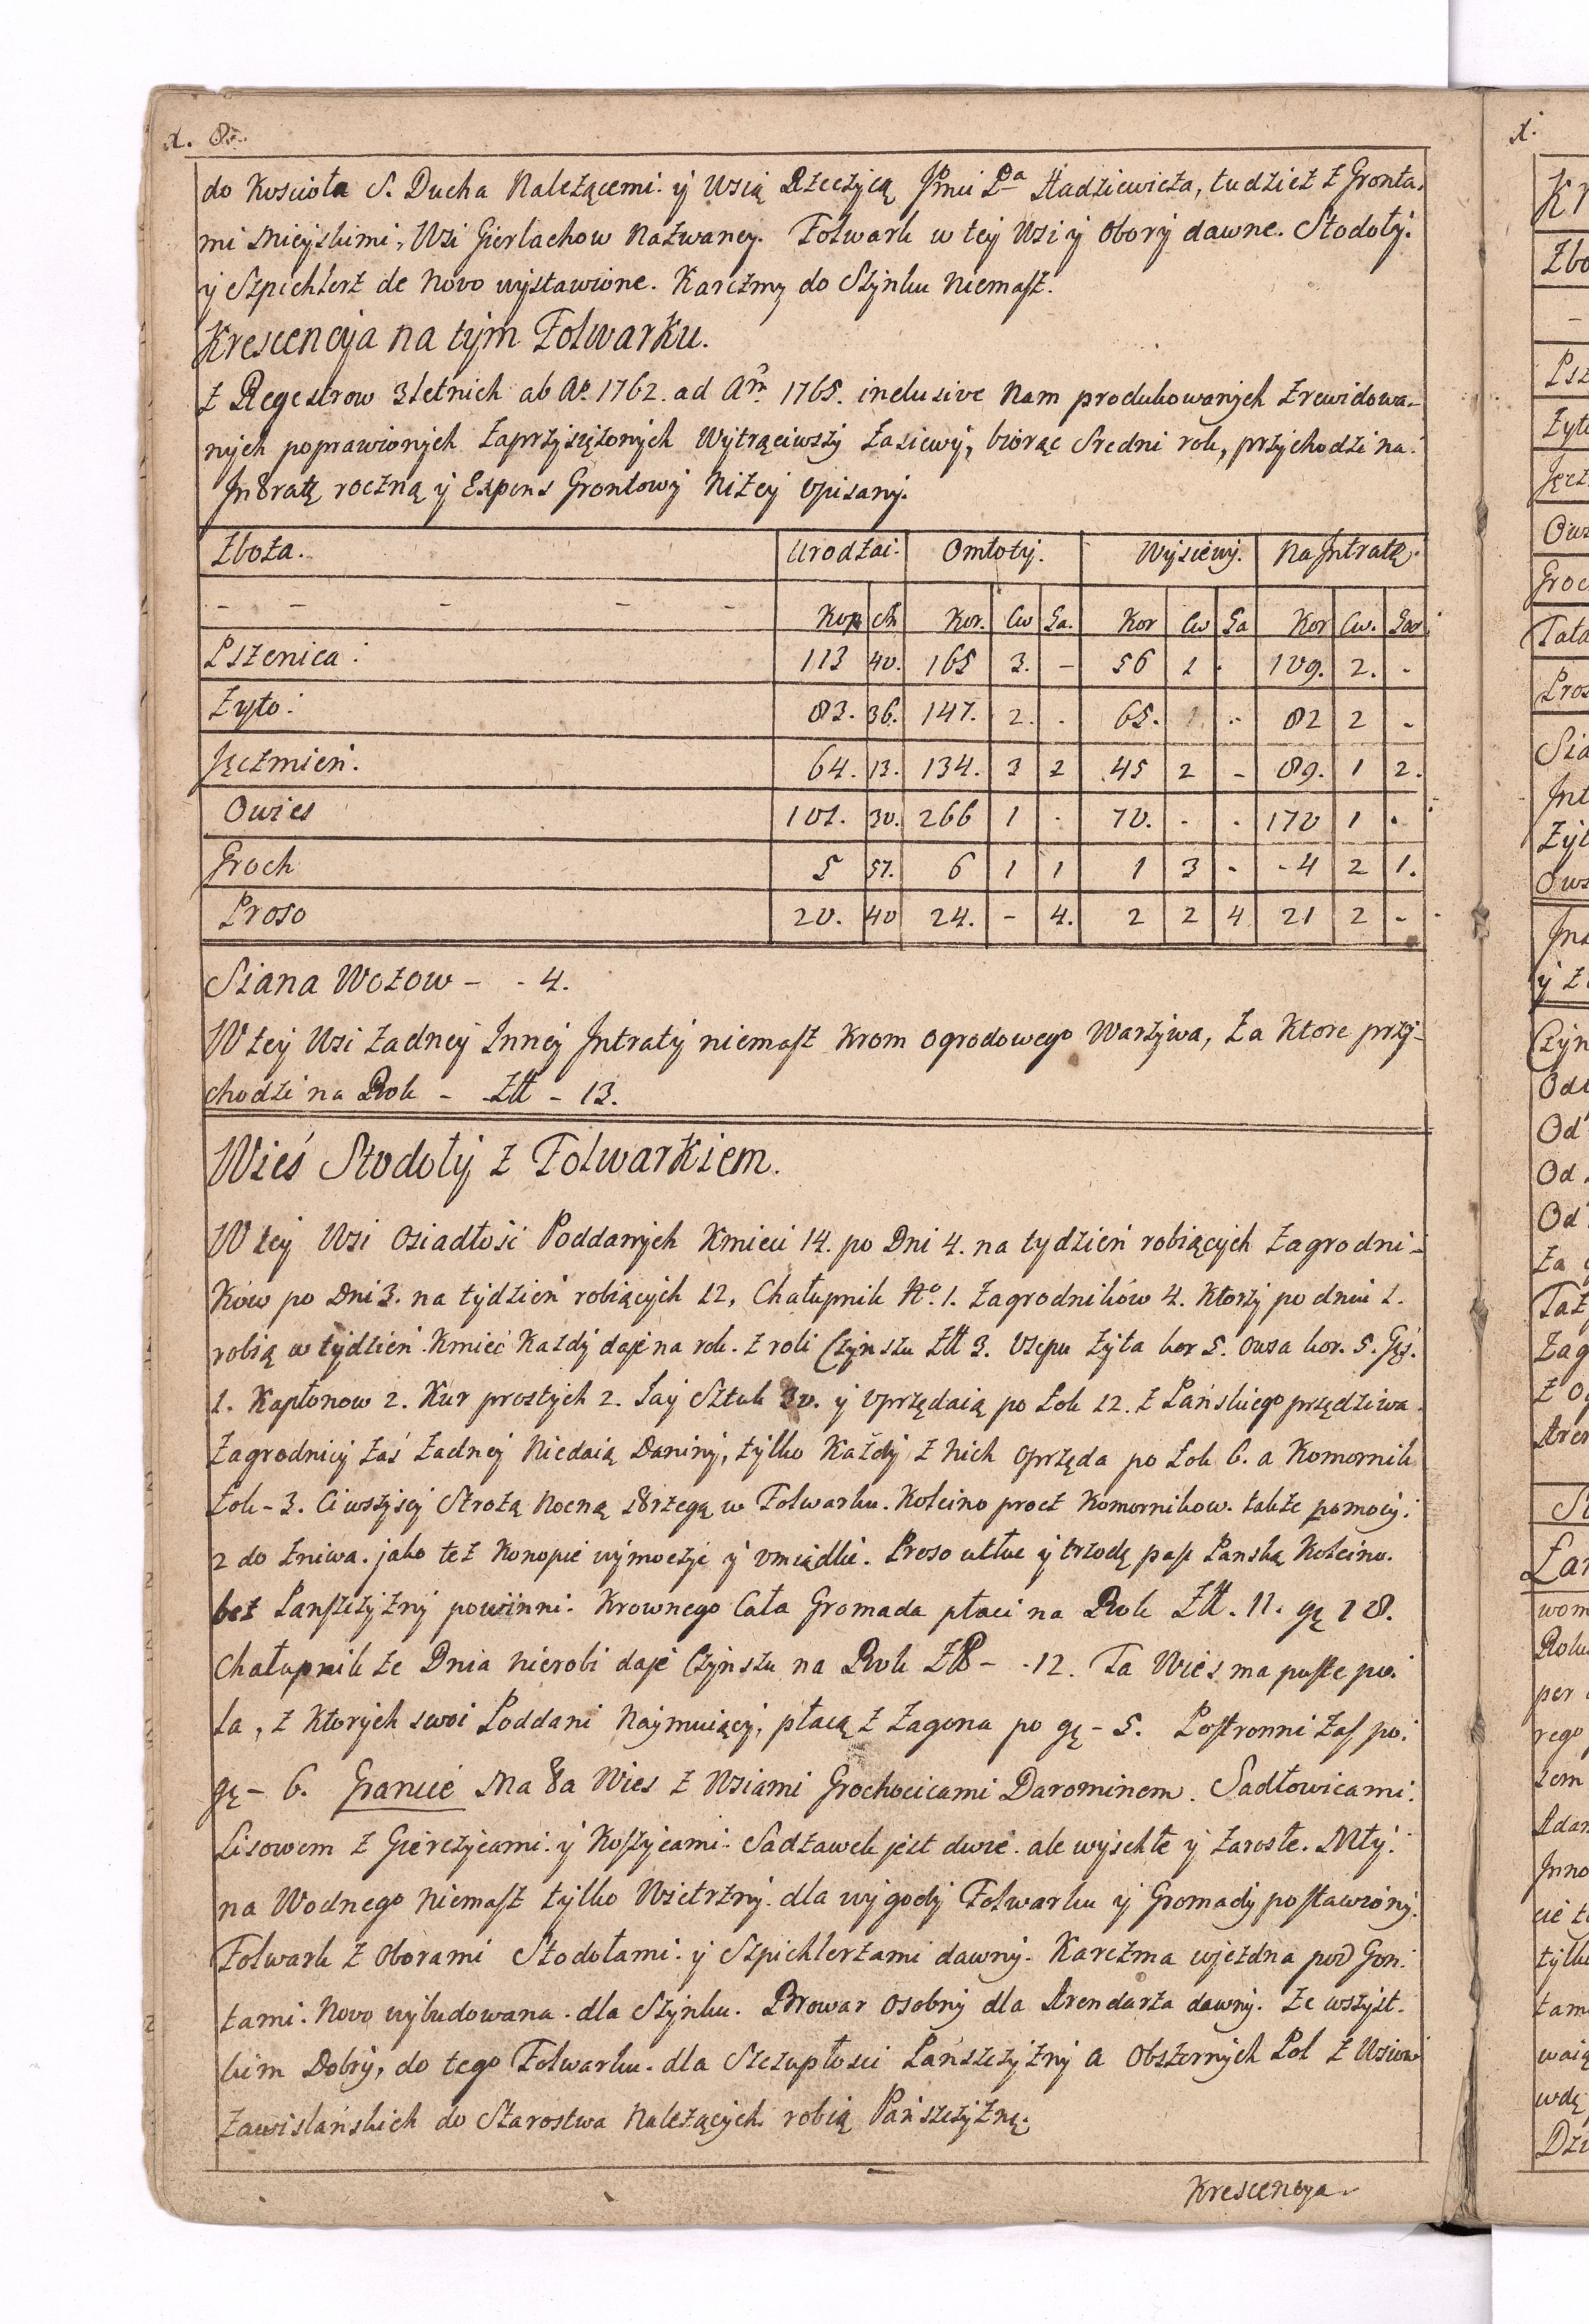 X. 8.
do Kościoła S. Ducha Należącemi. y Wsią Rzeczycą Jmci Pa Radziewicza, tudzież z Gronta-
mi Mieyskimi, Wsi Gierlachow Nazwaney. Folwark w tey Wsi y Obory dawne. Stodoły.
y Szpichlerz de Novo wystawione. Karczmy do Szynku niemasz.
Krescencyja na tym Folwarku.
Z Regestrow 3letnich ab Ao 1762. ad Am 1765. inclusive Nam produkowanych Zrewidowa-
nych poprawionych Zaprzysiężonych Wytrąciwszy Zasiewy, biorąc Sredni rok, przychodzi na
Intratę roczną y Expens Grontowy Niżey Opisany.
Zboża. Urodzai. Omłoty. Wysiewy. Na Intratę.
- - - - - Kop ch Kor. Cw Ga. Kor Cw Ga Kor Cw. Gar.
Pszenica: 113 40. 165 3. - 56 1 . 109. 2. -
Zyto: 83. 36. 147. 2. . 65. . 82 2 -
Jęczmień. 64. 13. 134. 3 2 45 2 - 89. 1 2.
Owies 101. 30. 266 1 . 70. . . 170 1 .
Groch 5 57. 6 1 1 1 3 - - 4 2 1.
Proso 20. 40 24. - 4. 2 2 4 21 2 -
Siana Wozow - - 4.
W tey Wsi żadney Inney Intraty niemasz krom ogrodowego Warzywa, za ktore przy-
chodzi na Rok - Zł - 13.
Wieś Stodoły z Folwarkiem.
W tey Wsi Osiadłość Poddanych Kmieci 14. po Dni 4. na tydzień robiących Zagrodni-
ków po Dni 3. na tydzień robiących 12, Chałupnik No. 1. Zagrodników 4. Ktorzy po dniu 1.
robią w tydzień. Kmieć Każdy daje na rok. z roli Czynszu Zł 3. Osepu żyta kor 5. owsa kor. 5. Gęś.
1. Kapłonow 2. Kur prostych 2. Jay Sztuk 30. y Oprzędaią po Łok 12. z Pańskiego przędziwa.
Zagrodnicy zaś żadney Niedaią Daniny, tylko Każdy z Nich oprzęda po Łok 6. a Komornik
Łok - 3. Ci wszyscy Strożą Nocną strzegą w Folwarku. Koleino procz Komornikow. także pomocy.
2 do żniwa. jako też Konopie wymoczyć y umiądlić. Proso utłuc y trzodę paść Panską Koleino.
bez Panszczyzny powinni. Krownego Cała Gromada płaci na Rok Zł. 11. gę 18.
Chałupnik że Dnia nierobi daje Czynszu na Rok Zł - -12. Ta Wieś ma puste po-
la, z ktorych swoi Poddani Naymuiący, płacą z Zagona po gę - 5. Postronni zaś po.
gę - 6. Granicé Ma ta Wies z Wsiami Grochocicami Darominem. Sadłowicami.
Lisowem z Gierczycami. y Koszycami. Sadzawek jest dwie. ale wyschłe y zarosłe. Mły-
na Wodnego Niemasz tylko Wietrzny. dla wygody Folwarku y Gromady postawiony.
Folwark z Oborami Stodołami. y Szpichlerzami dawny. Karczma wjezdna pod Gon-
tami. Novo wybudowana. dla Szynku. Browar osobny dla Arendarza dawny. Ze wszyst-
kim Dobry, do tego Folwarku. dla Szczupłości Pańszczyzny a Obszernych Pol z Wsiow
Zawislańskich do Starostwa Należących robią Pańszczyznę.
Krescencya